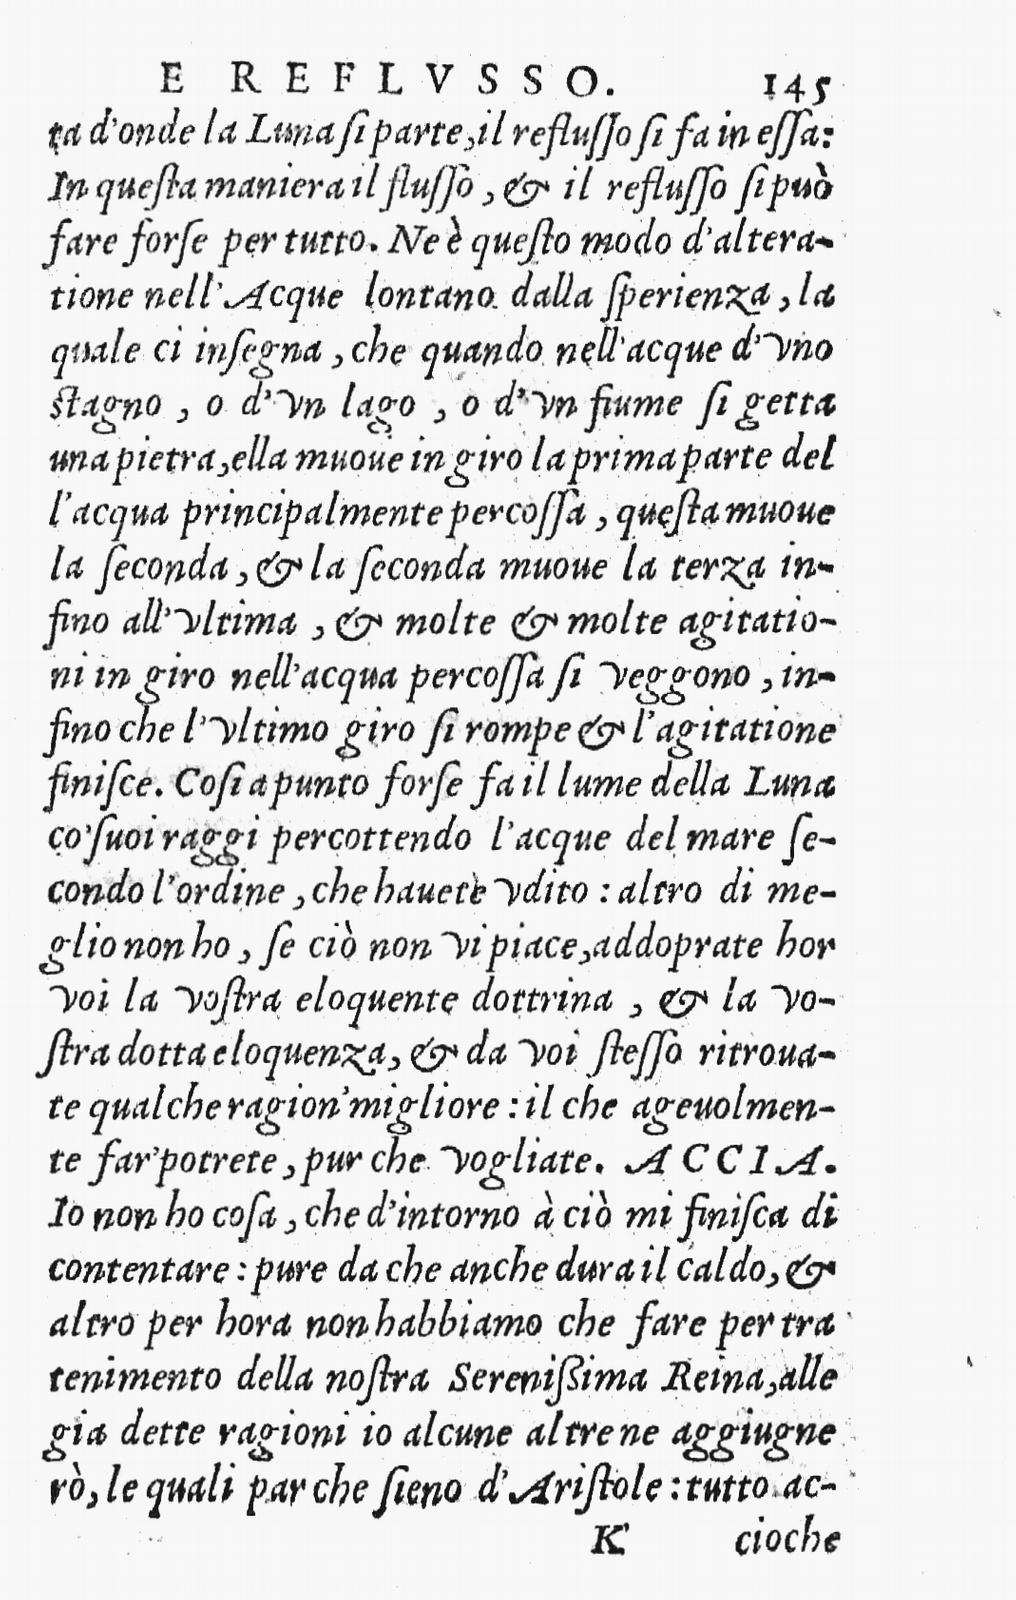 E REFLVSSO. 145
ta d'onde la Luna ſi parte, il refluſſo ſi fa in eſſa:
In queſta maniera il fluſſo, & il refluſſo ſi può
fare forſe per tutto. Ne è queſto modo d'altera-
tione nell'Acque lontano dalla ſperienza, la
quale ci inſegna, che quando nell'acque d'vno
ſtagno, o d'vn lago, o d'vn fiume ſi getta
una pietra, ella muoue in giro la prima parte del
l'acqua principalmente percoſſa, queſta muoue
la ſeconda, & la ſeconda muoue la terza in-
fino all'vltima, & molte & molte agitatio-
ni in giro nell'acqua percoſſa ſi veggono, in-
fino che l'vltimo giro ſi rompe & l'agitatione
finiſce. Coſi apunto forſe fa il lume della Luna
co'ſuoi raggi percottendo l'acque del mare ſe-
condo l'ordine, che hauete vdito: altro di me-
glio non ho, ſe ciò non vi piace, addoprate hor
voi la voſtra eloquente dottrina, & la vo-
ſtra dotta eloquenza, & da voi ſteſſo ritroua-
te qualche ragion'migliore: il che ageuolmen-
te far'potrete, pur che vogliate. ACCIA.
Io non ho coſa, che d'intorno à ciò mi finiſca di
contentare: pure da che anche dura il caldo, &
altro per hora non habbiamo che fare per tra
tenimento della noſtra Sereniſſima Reina, alle
gia dette ragioni io alcune altre ne aggiugne
rò, le quali par che ſieno d'Ariſtole: tutto ac-
K cioche